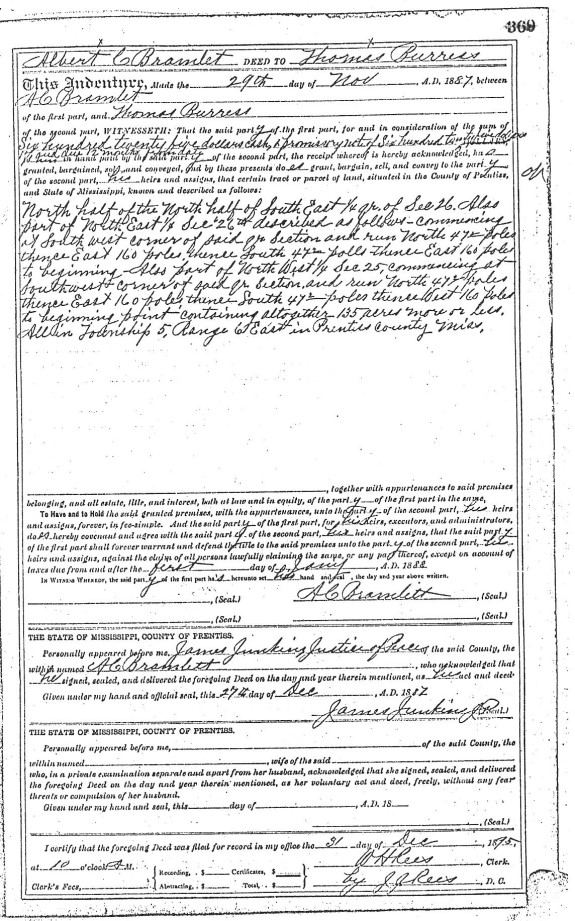 369
Albert C Bramlet DEED TO Thomas Burress
This Indenture, Made the 29th day of Nov A.D. 1887, between
A C Bramlet
of the first part, and Thomas Burress
of the second part, WITNESSETH: That the said party of the first part, for and in consideration of the sum of
Six hundred twenty five dollars cash, & promissory note of Six hundred twenty five dollars
in hand paid by the said party of the second part, the receipt whereof is hereby acknowledged, has
granted, bargained, sold and conveyed, and by these presents does grant, bargain, sell, and convey to the party
of the second part, his heirs and assigns, that certain tract or parcel of land, situated in the County of Prentiss,
and State of Mississippi, known and described as follows:
North half of the North half of South East 1/4 qr. of Sec 26. Also
part of North East 1/4 Sec 26th described as follows - commencing
at South west corner of said qr Section and run North 47 1/2 poles
thence East 160 poles, thence South 47 1/2 polls thence East 160 poles
to beginning - Also part of North West 1/4 Sec 25, commencing at
Southwest corner of said qr Section, and run North 47 1/2 poles
thence East 160 poles, thence South 47 1/2 poles thense West 160 poles
to beginning point containing altogether 135 acres more or less.
All in Township 5, Range 6 East in Prentiss County Miss,
together with appurtenances to said premises
belonging, and all estate, title, and interest, both at law and in equity, of the party of the first part in the same,
To Have and to Hold the said granted premises, with the appurtenances, unto the party of the second part, his heirs
and assigns, forever, in fee-simple. And the said party of the first part, for his heirs, executors, and administrators,
does hereby covenant and agree with the said party of the second part, his heirs and assigns, that the said party
of the first part shall forever warrant and defend the title to the said premises unto the party of the second part, his
heirs and assigns, against the claim of all persons lawfully claiming the same, or any part thereof, except on account of
taxes due from and after the first day of Jany, A.D. 1888.
IN WITNESS WHEREOF, the said party of the first part has hereunto set his hand and seal, the day and year above written.
, (Seal.) A C Bramlett , (Seal.)
, (Seal.) , (Seal.)
THE STATE OF MISSISSIPPI, COUNTY OF PRENTISS.
Personally appeared before me, James Junkins Justice of Peace of the said County, the
within named A C Bramlett , who acknowledged that
he signed, sealed, and delivered the foregoing Deed on the day and year therein mentioned, as his act and deed.
Given under my hand and official seal, this 27th day of Dec , A.D. 1887
James Junkins J.P. (Seal.)
THE STATE OF MISSISSIPPI, COUNTY OF PRENTISS.
Personally appeared before me, of the said County, the
within named , wife of the said
who, in a private examination separate and apart from her husband, acknowledged that she signed, sealed, and delivered
the foregoing Deed on the day and year therein mentioned, as her voluntary act and deed, freely, without any fear
threats or compulsion of her husband.
Given under my hand and seal, this day of , A.D. 18
, (Seal.)
I certify that the foregoing Deed was filed for record in my office the 31 day of Dec , 1895,
at 10 o'clock A.M. W H Rees , Clerk.
Recording, - $ Certificates, $
Clerk's Fees, Abstracting, - $ Total, - $ by J A Rees , D. C.